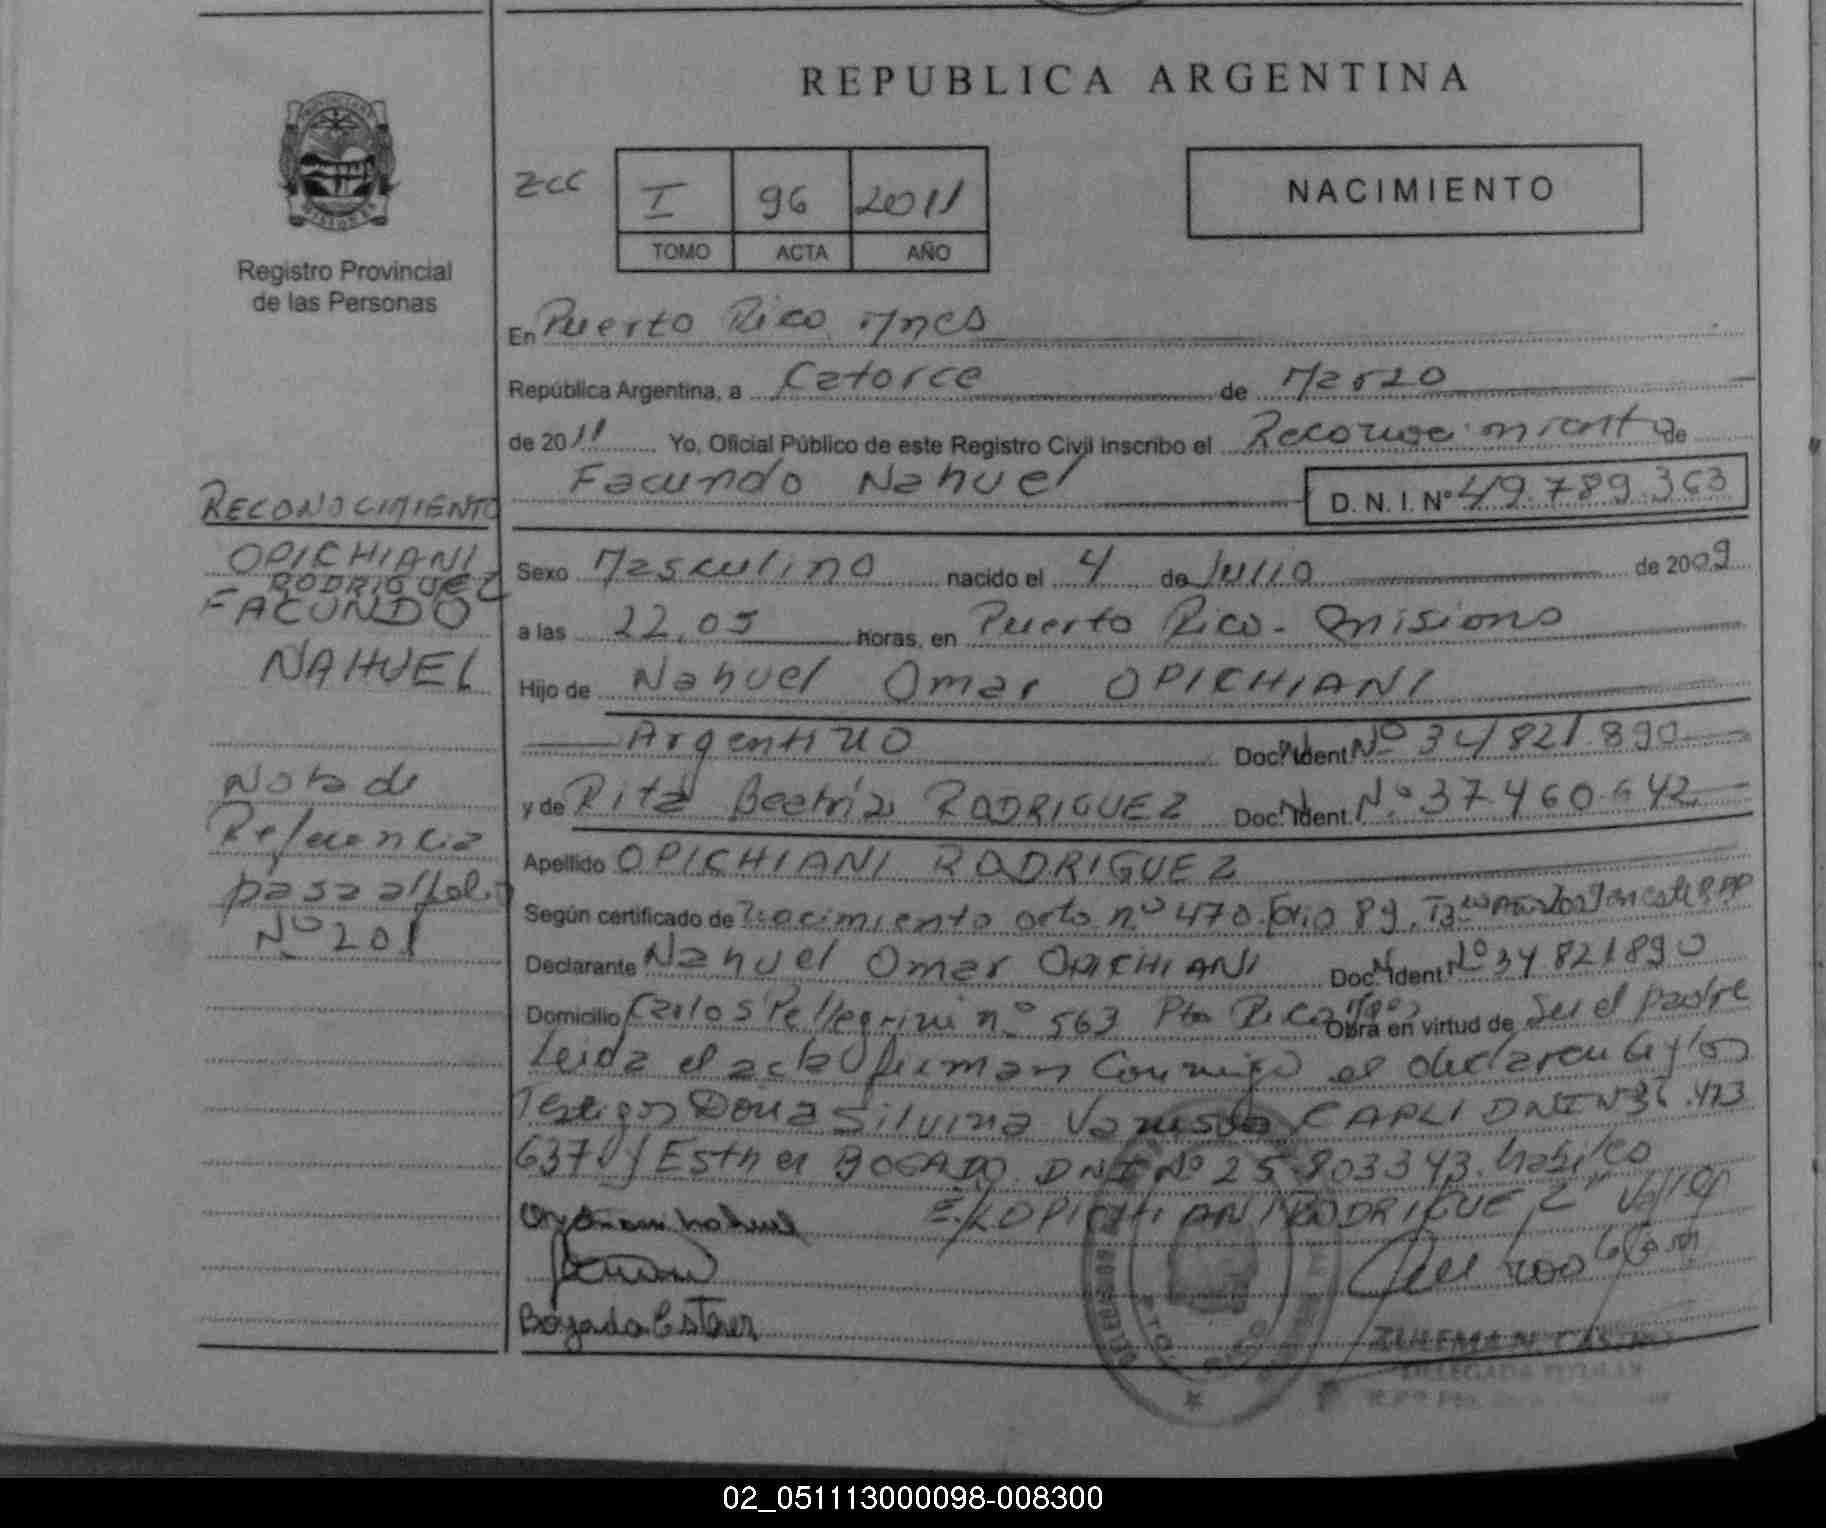 REPUBLICA ARGENTINA
Registro Provincial
de las Personas
zcc
I 96 2011
TOMO ACTA AÑO
NACIMIENTO
En Puerto Rico Mnes
República Argentina, a Catorce de Marzo
de 2011 Yo, Oficial Público de este Registro Civil inscribo el Reconocimiento de
Facundo Nahuel D. N. I. Nº 49.789.363
Sexo Masculino nacido el 4 de Julio de 2009
a las 22.05 horas, en Puerto Rico - Misiones
Hijo de Nahuel Omar OPICHIANI
Argentino Doc. Ident. Nº 34821.890
y de Rita Beatriz RODRIGUEZ Doc. Ident. Nº 37.460.642
Apellido OPICHIANI RODRIGUEZ
Según certificado de Nacimiento acta nº 470 Folio 89
Declarante Nahuel Omar OPICHIANI Doc. Ident. Nº 34821890
Domicilio Carlos Pellegrini nº 563 Pto Rico Obra en virtud de Ser el padre
Leida el acta firman Conmigo el declarante y los
Testigos Doña Silvina Vanessa CAPLI DNI Nº 36.473
637 y Esther BOGADO DNI Nº 25.803343.
OPICHIANI RODRIGUEZ" Vale
Bogado Ester
DELEGADA TITULAR
RECONOCIMIENTO
OPICHIANI
RODRIGUEZ
FACUNDO
NAHUEL
Nota de
Referencia
pasa al folio
Nº 201
02_051113000098-008300